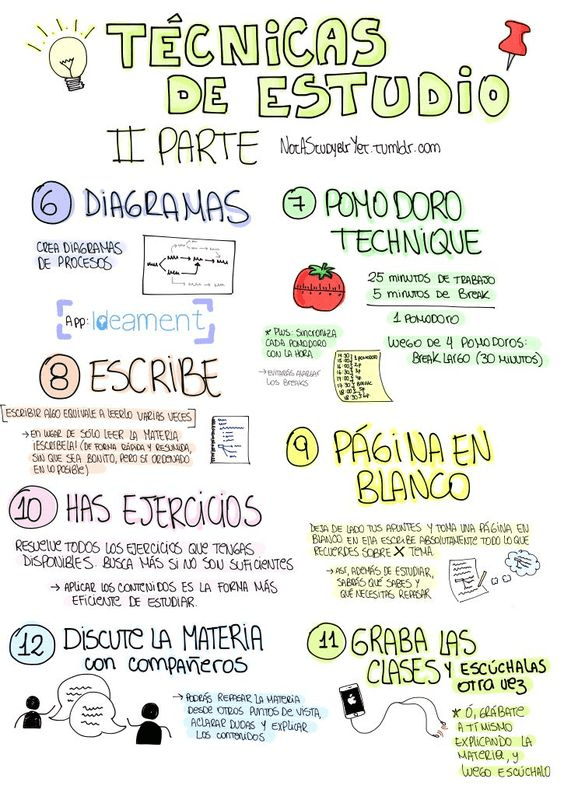 TÉCNICAS
DE ESTUDIO
II PARTE
NotAStudyblrYet.tumblr.com
6 DIAGRAMAS
CREA DIAGRAMAS
DE PROCESOS
App: Ideament
7 POMODORO
TECHNIQUE
25 minutos de trabajo
5 minutos de Break
1 POMODORO
LUEGO DE 4 POMODOROS:
BREAK LARGO (30 MINUTOS)
* Plus: Sincroniza
cada pomodoro
con la hora
→ evitarás alargar
los breaks
8 ESCRIBE
ESCRIBIR ALGO EQUIVALE A LEERLO VARIAS VECES
→ EN LUGAR DE SÓLO LEER LA MATERIA
¡ESCRÍBELA! (DE FORMA RÁPIDA Y RESUMIDA,
SIN QUE SEA BONITO, PERO SÍ ORDENADO
EN LO POSIBLE)
9 PÁGINA EN
BLANCO
DEJA DE LADO TUS APUNTES Y TOMA UNA PÁGINA EN
BLANCO EN ELLA ESCRIBE ABSOLUTAMENTE TODO LO QUE
RECUERDES SOBRE X TEMA
→ ASÍ, ADEMÁS DE ESTUDIAR,
SABRÁS QUÉ SABES Y
QUÉ NECESITAS REPASAR
10 HAS EJERCICIOS
RESUELVE TODOS LOS EJERCICIOS QUE TENGAS
DISPONIBLES. BUSCA MÁS SI NO SON SUFICIENTES
→ APLICAR LOS CONTENIDOS ES LA FORMA MÁS
EFICIENTE DE ESTUDIAR.
11 GRABA LAS
CLASES Y ESCÚCHALAS
OTRA VEZ
* Ó, GRÁBATE
A TÍ MISMO
EXPLICANDO LA
MATERIA, Y
LUEGO ESCÚCHALO
12 DISCUTE LA MATERIA
con compañeros
→ PODRÁS REPASAR LA MATERIA
DESDE OTROS PUNTOS DE VISTA,
ACLARAR DUDAS Y EXPLICAR
LOS CONTENIDOS